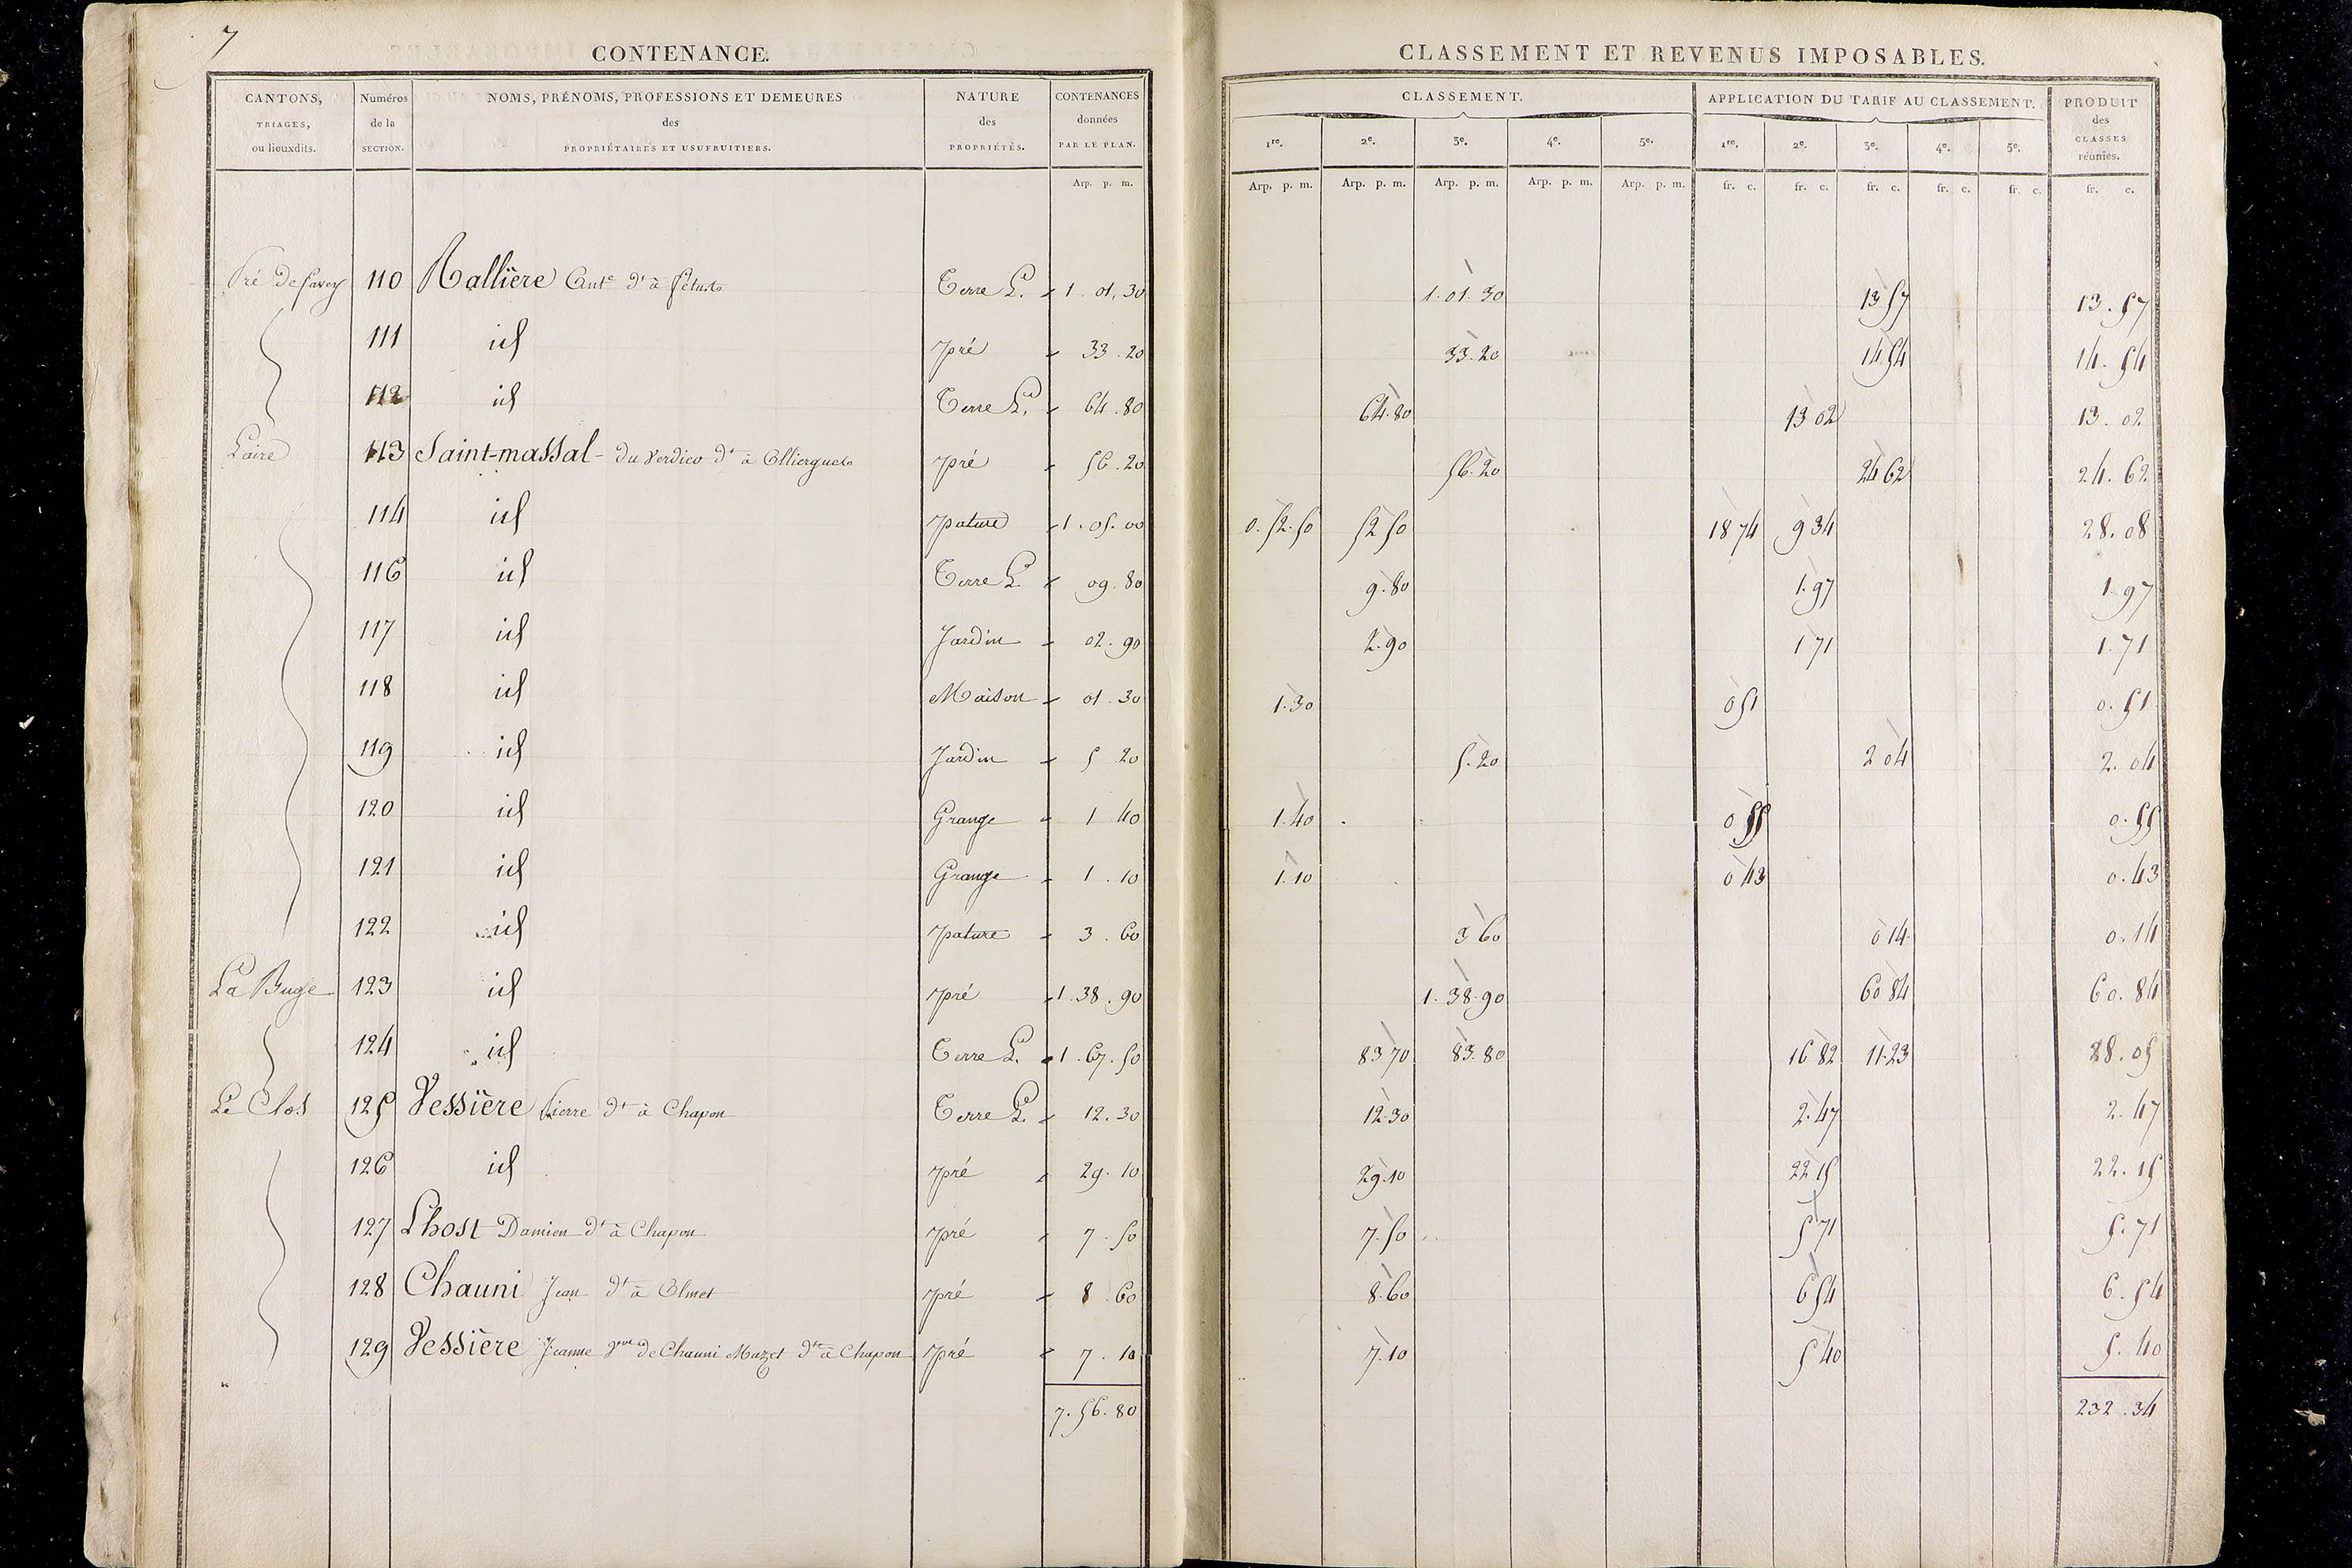 7
CONTENANCE.
CANTONS, TRIAGES, ou lieuxdits. | Numéros de la SECTION. | NOMS, PRÉNOMS, PROFESSIONS ET DEMEURES des PROPRIÉTAIRES ET USUFRUITIERS. | NATURE des PROPRIÉTÉS. | CONTENANCES données PAR LE PLAN.
Arp. p. m.
CLASSEMENT ET REVENUS IMPOSABLES.
CLASSEMENT. | APPLICATION DU TARIF AU CLASSEMENT. | PRODUIT des CLASSES réunies.
1re. | 2e. | 3e. | 4e. | 5e. | 1re. | 2e. | 3e. | 4e. | 5e.
Arp. p. m. | Arp. p. m. | Arp. p. m. | Arp. p. m. | Arp. p. m. | fr. c. | fr. c. | fr. c. | fr. c. | fr. c. | fr. c.
Pré De 110 Rallière Ant.e dt à Terre L. 1. 01. 30 1. 01. 30 13 57 13. 57
111 id pré 33. 20 33. 20 14 54 14. 54
112 id Terre L. 64. 80 64. 80 13 02 13. 02
Laire 113 Saint-massal du Verdier dt à Olliergues pré 56. 20 56. 20 24 62 24. 62
114 id pature 1. 05. 00 0. 52. 50 52 50 18 74 9 34 28. 08
116 id Terre L 09. 80 9. 80 1. 97 1. 97
117 id Jardin 02. 90 2. 90 1 71 1. 71
118 id Maison 01. 30 1. 30 0 51 0. 51
119 id Jardin 5 20 5. 20 2 04 2. 04
120 id Grange 1 40 1. 40 0 55 0. 55
121 id Grange 1. 10 1. 10 0 43 0. 43
122 id pature 3. 60 3 60 0 14 0. 14
La Buge 123 id pré 1. 38. 90 1. 38. 90 60 84 60. 84
124 id Terre L. 1. 67. 50 83 70 83. 80 16 82 11. 23 28. 05
Le Clos 125 Vessière Pierre dt à Chapon Terre L. 12. 30 12. 30 2. 47 2. 47
126 id pré 29. 10 29. 10 22 15 22. 15
127 Lhost Damien dt à Chapon pré 7. 50 7. 50 5 71 5. 71
128 Chauni Jean dt à Olmet pré 8. 60 8. 60 6 54 6. 54
129 Vessière Jeanne Vve de Chauni Mazet dte à Chapon pré 7. 10 7. 10 5 40 5. 40
7. 56. 80 232. 34